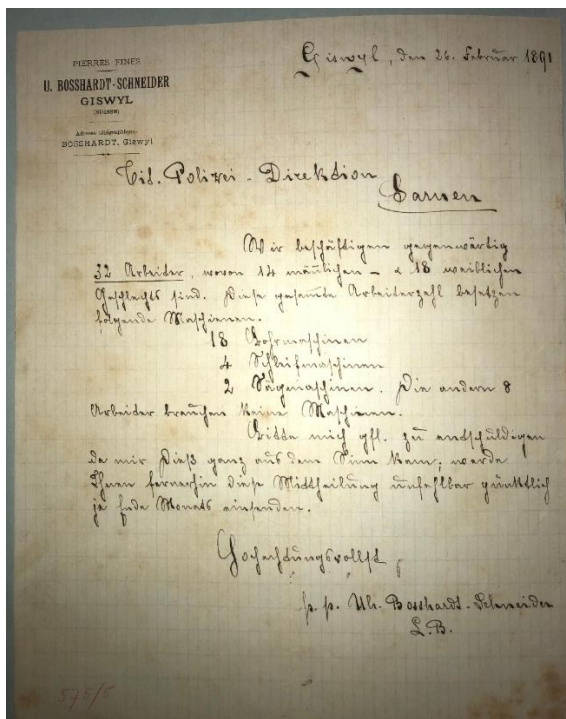 PIERRES FINES
U. BOSSHARDT-SCHNEIDER
GISWYL
(SUISSE)
Adresse télégraphique:
BOSSHARDT, Giswyl
Giswyl, den 26. Februar 1891
Tit. Polizei-Direktion
Sarnen
Wir beschäftigen gegenwärtig
32 Arbeiter, wovon 14 mäñlichen - & 18 weiblichen
Geschlechts sind. Diese gesamte Arbeiterzahl besetzen
folgende Maschienen.
18 Bohrmaschinen
4 Schleifmaschinen
2 Sägemaschinen. Die andern 8
Arbeiter brauchen keine Maschinen.
Bitte mich gfl. zu entschuldigen
da mir Dieß ganz aus dem Sinn kam; werde
Ihnen fernerhin diese Mittheilung unfehlbar pünktlich
je Ende Monats einsenden.
Hochachtungsvollst
p. p. Ul. Bosshardt-Schneider
L.B.
575/5